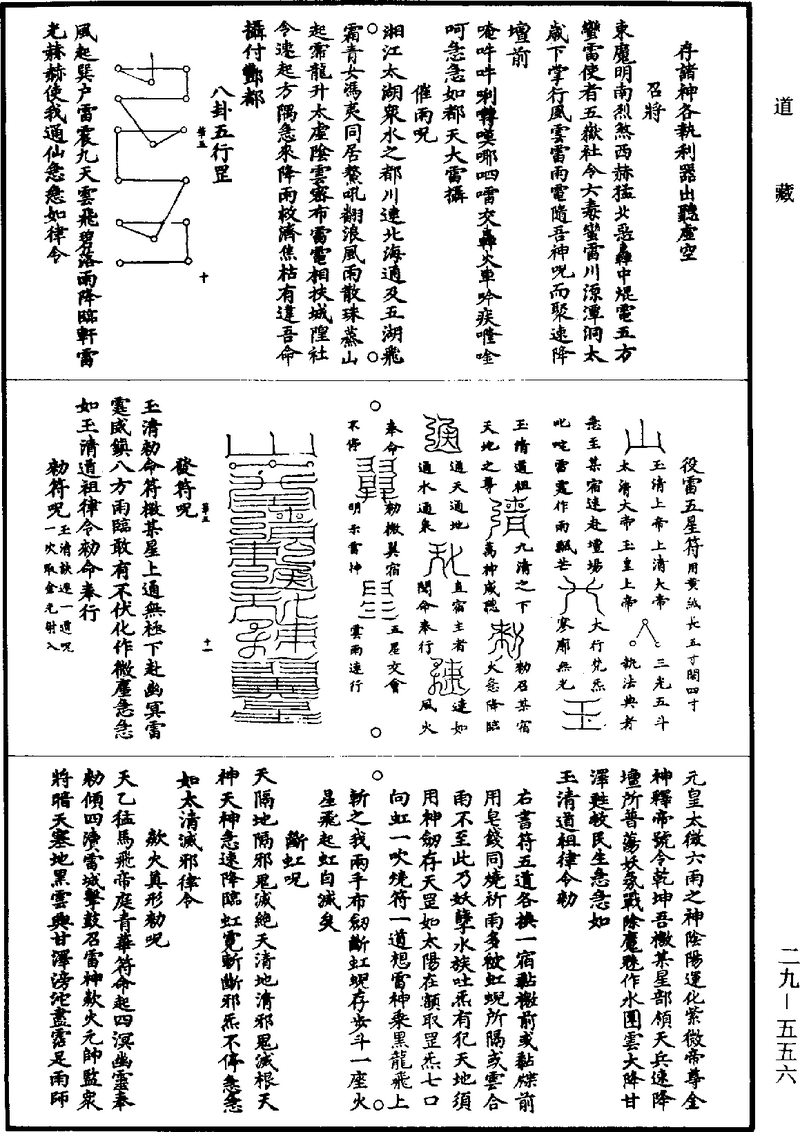 道藏
存諸神各執利器出聽虛空
召將
東魔明南烈煞西赫猛北惡轟中焜電五方
蠻雷使者五嶽社令六毒蠻雷川源潭洞太
歲下掌行風雲雷雨電隨吾神呪而聚速降
壇前
唵吽吽唎轉嘆哪呬嚅交轟火車吟疾唯唫
呵急急如都天大雷攝
催雨呪
湘江太湖衆水之都川連北海通及五湖飛
霜青女馮夷同居鰲吼翻浪風雨散珠蒸山
起霈龍升太虛陰雲密布雷電相扶城隍社
令速起方隅急來降雨救濟焦枯有違吾命
攝付酆都
八卦五行罡
第五
十
風起巽户雷震九天雲飛碧落雨降臨軒雷
光赫赫使我通仙急急如律令
役雷五星符用黃紙長五寸闊四寸
玉清上帝上清大帝
太清大帝玉皇上帝
三光五斗
執法典者
急至某宿速赴壇場
叱咤雷霆作雨飄茫
大行梵炁
寥廓無光
玉清道祖
天地之尊
九清之下
萬神咸聽
勑召某宿
火急降臨
通天通地
通水通泉
直宿主者
聞命奉行
速如
風火
奉命
不停
勑檄翼宿
明示雷神
五星交會
雲雨速行
發符呪
第五
十一
玉清勑命符檄某星上通無極下赴幽冥雷
霆威鎮八方雨臨敢有不伏化作微塵急急
如玉清道祖律令勑命奉行
勑符呪玉清訣逐一道呪一吹取金光射入
元皇太微六雨之神陰陽運化紫微帝尊全
神釋帝號令乾坤吾檄某星部領天兵速降
壇所普蕩妖氛戰除魔魅作水團雲大降甘
澤甦救民生急急如
玉清道祖律令勑
右書符五道各換一宿黏檄前或黏牒前
用皂錢同燒祈雨多被虹蜺所隔或雲合
雨不至此乃妖孽水族吐炁有犯天地須
用神劒存天罡如太陽在額取罡炁七口
向虹一吹燒符一道想雷神乘黑龍飛上
斬之我兩手布劒斷虹蜺存步斗一座火
星飛起虹自滅矣
斷虹呪
天隔地隔邪鬼滅絶天清地清邪鬼滅根天
神天神急速降臨虹霓斬斷邪炁不停急急
如太清滅邪律令
歘火真形勑呪
天乙猛馬飛帝庭青華符命起四溟幽靈奉
勑傾四瀆雷城擊鼓召雷神歘火元帥監衆
將暗天塞地黑雲興甘澤滂沱盡霑足雨師
二九—五五六